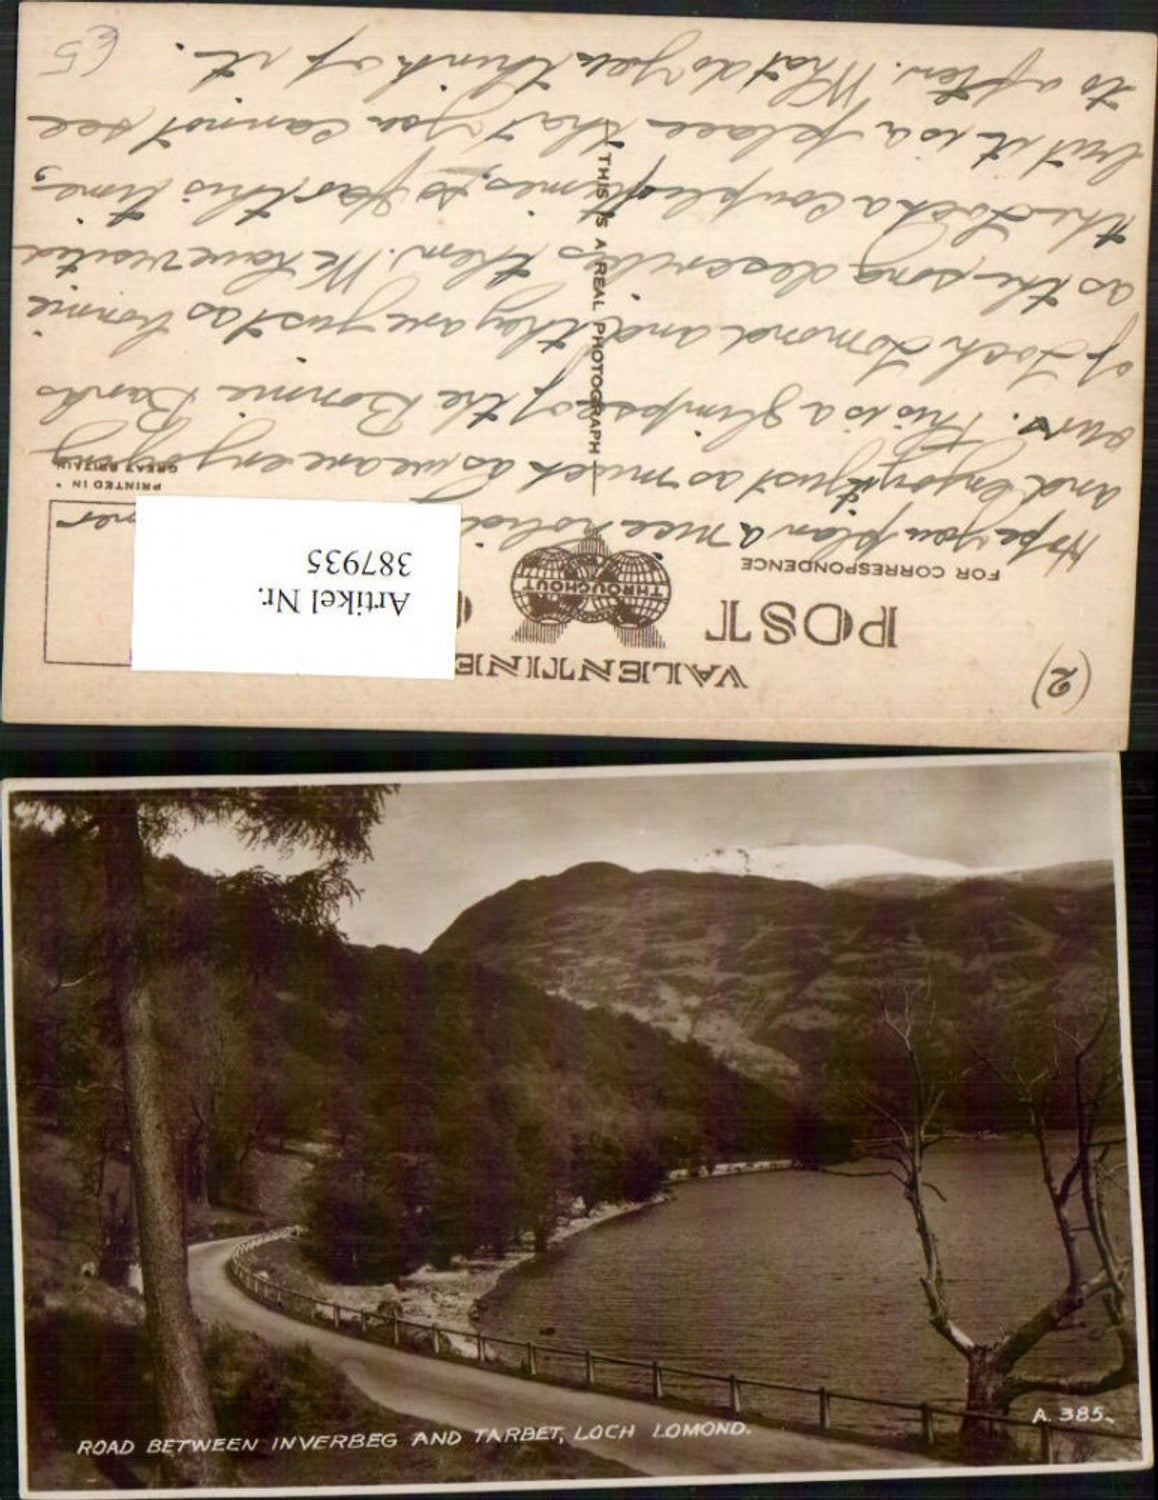 (2)
VALENTINE
POST
THROUGHOUT
FOR CORRESPONDENCE
Artikel Nr.
387935
PRINTED IN
GREAT BRITAIN
THIS IS A REAL PHOTOGRAPH
Hope you plan a nice
and enjoy it just as much as we are enjoying
ours. This is a glimpse of the Bonnie Banks
of Loch Lomond and they are just as bonnie
as the song describes them. We have visited
the Loch a couple of times, so far this time,
but it is a place that you cannot see
to often. What do you think of it.
ROAD BETWEEN INVERBEG AND TARBET, LOCH LOMOND.
A. 385.